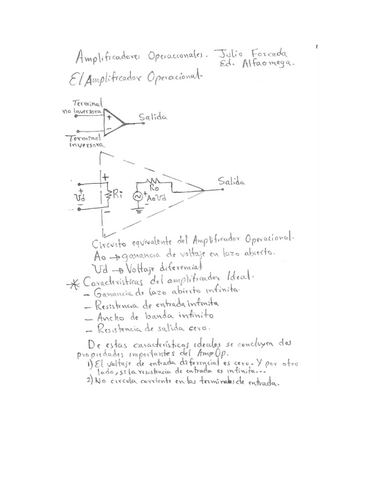 Amplificadores Operacionales. Julio Forcada
Ed. Alfaomega.
El Amplificador Operacional.
Terminal
no inversora
+
-
Salida
Terminal
inversora
+
Vd
-
Ri
Ro
+
AoVd
Salida
Circuito equivalente del Amplificador Operacional.
Ao → ganancia de voltaje en lazo abierto.
Vd → Voltaje diferencial
* Características del amplificador Ideal.
- Ganancia de lazo abierto infinita.
- Resistencia de entrada infinita
- Ancho de banda infinito
- Resistencia de salida cero.
De estas características ideales se concluyen dos
propiedades importantes del AmpOp.
1) El voltaje de entrada diferencial es cero. Y por otro
lado, si la resistencia de entrada es infinita...
2) No circula corriente en las terminales de entrada.